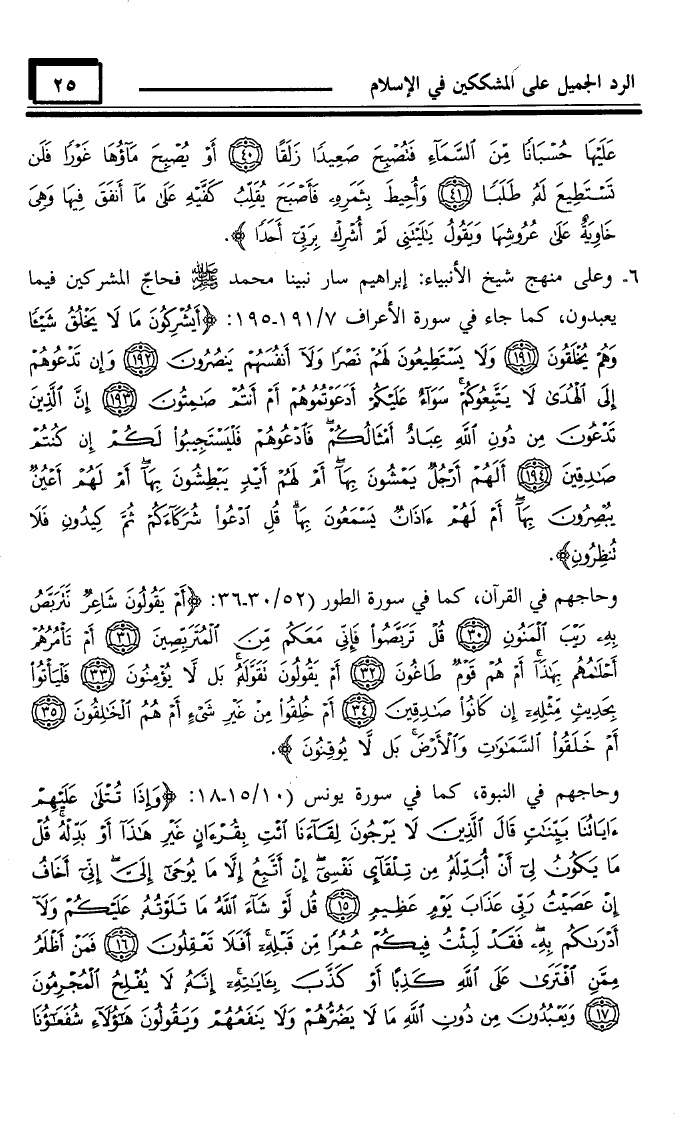 الرد الجميل على المشككين في الإسلام ٢٥
عَلَيْهَا حُسْبَانًا مِّنَ ٱلسَّمَآءِ فَتُصْبِحَ صَعِيدًا زَلَقًا ﴿٤٠﴾ أَوْ يُصْبِحَ مَآؤُهَا غَوْرًا فَلَن
تَسْتَطِيعَ لَهُۥ طَلَبًا ﴿٤١﴾ وَأُحِيطَ بِثَمَرِهِۦ فَأَصْبَحَ يُقَلِّبُ كَفَّيْهِ عَلَىٰ مَآ أَنفَقَ فِيهَا وَهِىَ
خَاوِيَةٌ عَلَىٰ عُرُوشِهَا وَيَقُولُ يَٰلَيْتَنِى لَمْ أُشْرِكْ بِرَبِّىٓ أَحَدًا ﴾.
٦ـ وعلى منهج شيخ الأنبياء: إبراهيم سار نبينا محمد ﷺ فحاجّ المشركين فيما
يعبدون، كما جاء في سورة الأعراف ١٩١/٧ـ١٩٥: ﴿أَيُشْرِكُونَ مَا لَا يَخْلُقُ شَيْـًٔا
وَهُمْ يُخْلَقُونَ ﴿١٩١﴾ وَلَا يَسْتَطِيعُونَ لَهُمْ نَصْرًا وَلَآ أَنفُسَهُمْ يَنصُرُونَ ﴿١٩٢﴾ وَإِن تَدْعُوهُمْ
إِلَى ٱلْهُدَىٰ لَا يَتَّبِعُوكُمْ ۚ سَوَآءٌ عَلَيْكُمْ أَدَعَوْتُمُوهُمْ أَمْ أَنتُمْ صَٰمِتُونَ ﴿١٩٣﴾ إِنَّ ٱلَّذِينَ
تَدْعُونَ مِن دُونِ ٱللَّهِ عِبَادٌ أَمْثَالُكُمْ ۖ فَٱدْعُوهُمْ فَلْيَسْتَجِيبُوا۟ لَكُمْ إِن كُنتُمْ
صَٰدِقِينَ ﴿١٩٤﴾ أَلَهُمْ أَرْجُلٌ يَمْشُونَ بِهَآ ۖ أَمْ لَهُمْ أَيْدٍ يَبْطِشُونَ بِهَآ ۖ أَمْ لَهُمْ أَعْيُنٌ
يُبْصِرُونَ بِهَآ ۖ أَمْ لَهُمْ ءَاذَانٌ يَسْمَعُونَ بِهَا ۗ قُلِ ٱدْعُوا۟ شُرَكَآءَكُمْ ثُمَّ كِيدُونِ فَلَا
تُنظِرُونِ﴾.
وحاجهم في القرآن، كما في سورة الطور (٣٠/٥٢ـ٣٦: ﴿أَمْ يَقُولُونَ شَاعِرٌ نَّتَرَبَّصُ
بِهِۦ رَيْبَ ٱلْمَنُونِ ﴿٣٠﴾ قُلْ تَرَبَّصُوا۟ فَإِنِّى مَعَكُم مِّنَ ٱلْمُتَرَبِّصِينَ ﴿٣١﴾ أَمْ تَأْمُرُهُمْ
أَحْلَٰمُهُم بِهَٰذَآ ۚ أَمْ هُمْ قَوْمٌ طَاغُونَ ﴿٣٢﴾ أَمْ يَقُولُونَ تَقَوَّلَهُۥ ۚ بَل لَّا يُؤْمِنُونَ ﴿٣٣﴾ فَلْيَأْتُوا۟
بِحَدِيثٍ مِّثْلِهِۦٓ إِن كَانُوا۟ صَٰدِقِينَ ﴿٣٤﴾ أَمْ خُلِقُوا۟ مِنْ غَيْرِ شَىْءٍ أَمْ هُمُ ٱلْخَٰلِقُونَ ﴿٣٥﴾
أَمْ خَلَقُوا۟ ٱلسَّمَٰوَٰتِ وَٱلْأَرْضَ ۚ بَل لَّا يُوقِنُونَ ﴾.
وحاجهم في النبوة، كما في سورة يونس (١٥/١٠ـ١٨: ﴿وَإِذَا تُتْلَىٰ عَلَيْهِمْ
ءَايَاتُنَا بَيِّنَٰتٍ قَالَ ٱلَّذِينَ لَا يَرْجُونَ لِقَآءَنَا ٱئْتِ بِقُرْءَانٍ غَيْرِ هَٰذَآ أَوْ بَدِّلْهُ ۚ قُلْ
مَا يَكُونُ لِىٓ أَنْ أُبَدِّلَهُۥ مِن تِلْقَآئِ نَفْسِىٓ ۖ إِنْ أَتَّبِعُ إِلَّا مَا يُوحَىٰٓ إِلَىَّ ۖ إِنِّىٓ أَخَافُ
إِنْ عَصَيْتُ رَبِّى عَذَابَ يَوْمٍ عَظِيمٍ ﴿١٥﴾ قُل لَّوْ شَآءَ ٱللَّهُ مَا تَلَوْتُهُۥ عَلَيْكُمْ وَلَآ
أَدْرَىٰكُم بِهِۦ ۖ فَقَدْ لَبِثْتُ فِيكُمْ عُمُرًا مِّن قَبْلِهِۦٓ ۚ أَفَلَا تَعْقِلُونَ ﴿١٦﴾ فَمَنْ أَظْلَمُ
مِمَّنِ ٱفْتَرَىٰ عَلَى ٱللَّهِ كَذِبًا أَوْ كَذَّبَ بِـَٔايَٰتِهِۦٓ ۚ إِنَّهُۥ لَا يُفْلِحُ ٱلْمُجْرِمُونَ
﴿١٧﴾ وَيَعْبُدُونَ مِن دُونِ ٱللَّهِ مَا لَا يَضُرُّهُمْ وَلَا يَنفَعُهُمْ وَيَقُولُونَ هَٰٓؤُلَآءِ شُفَعَٰٓؤُنَا